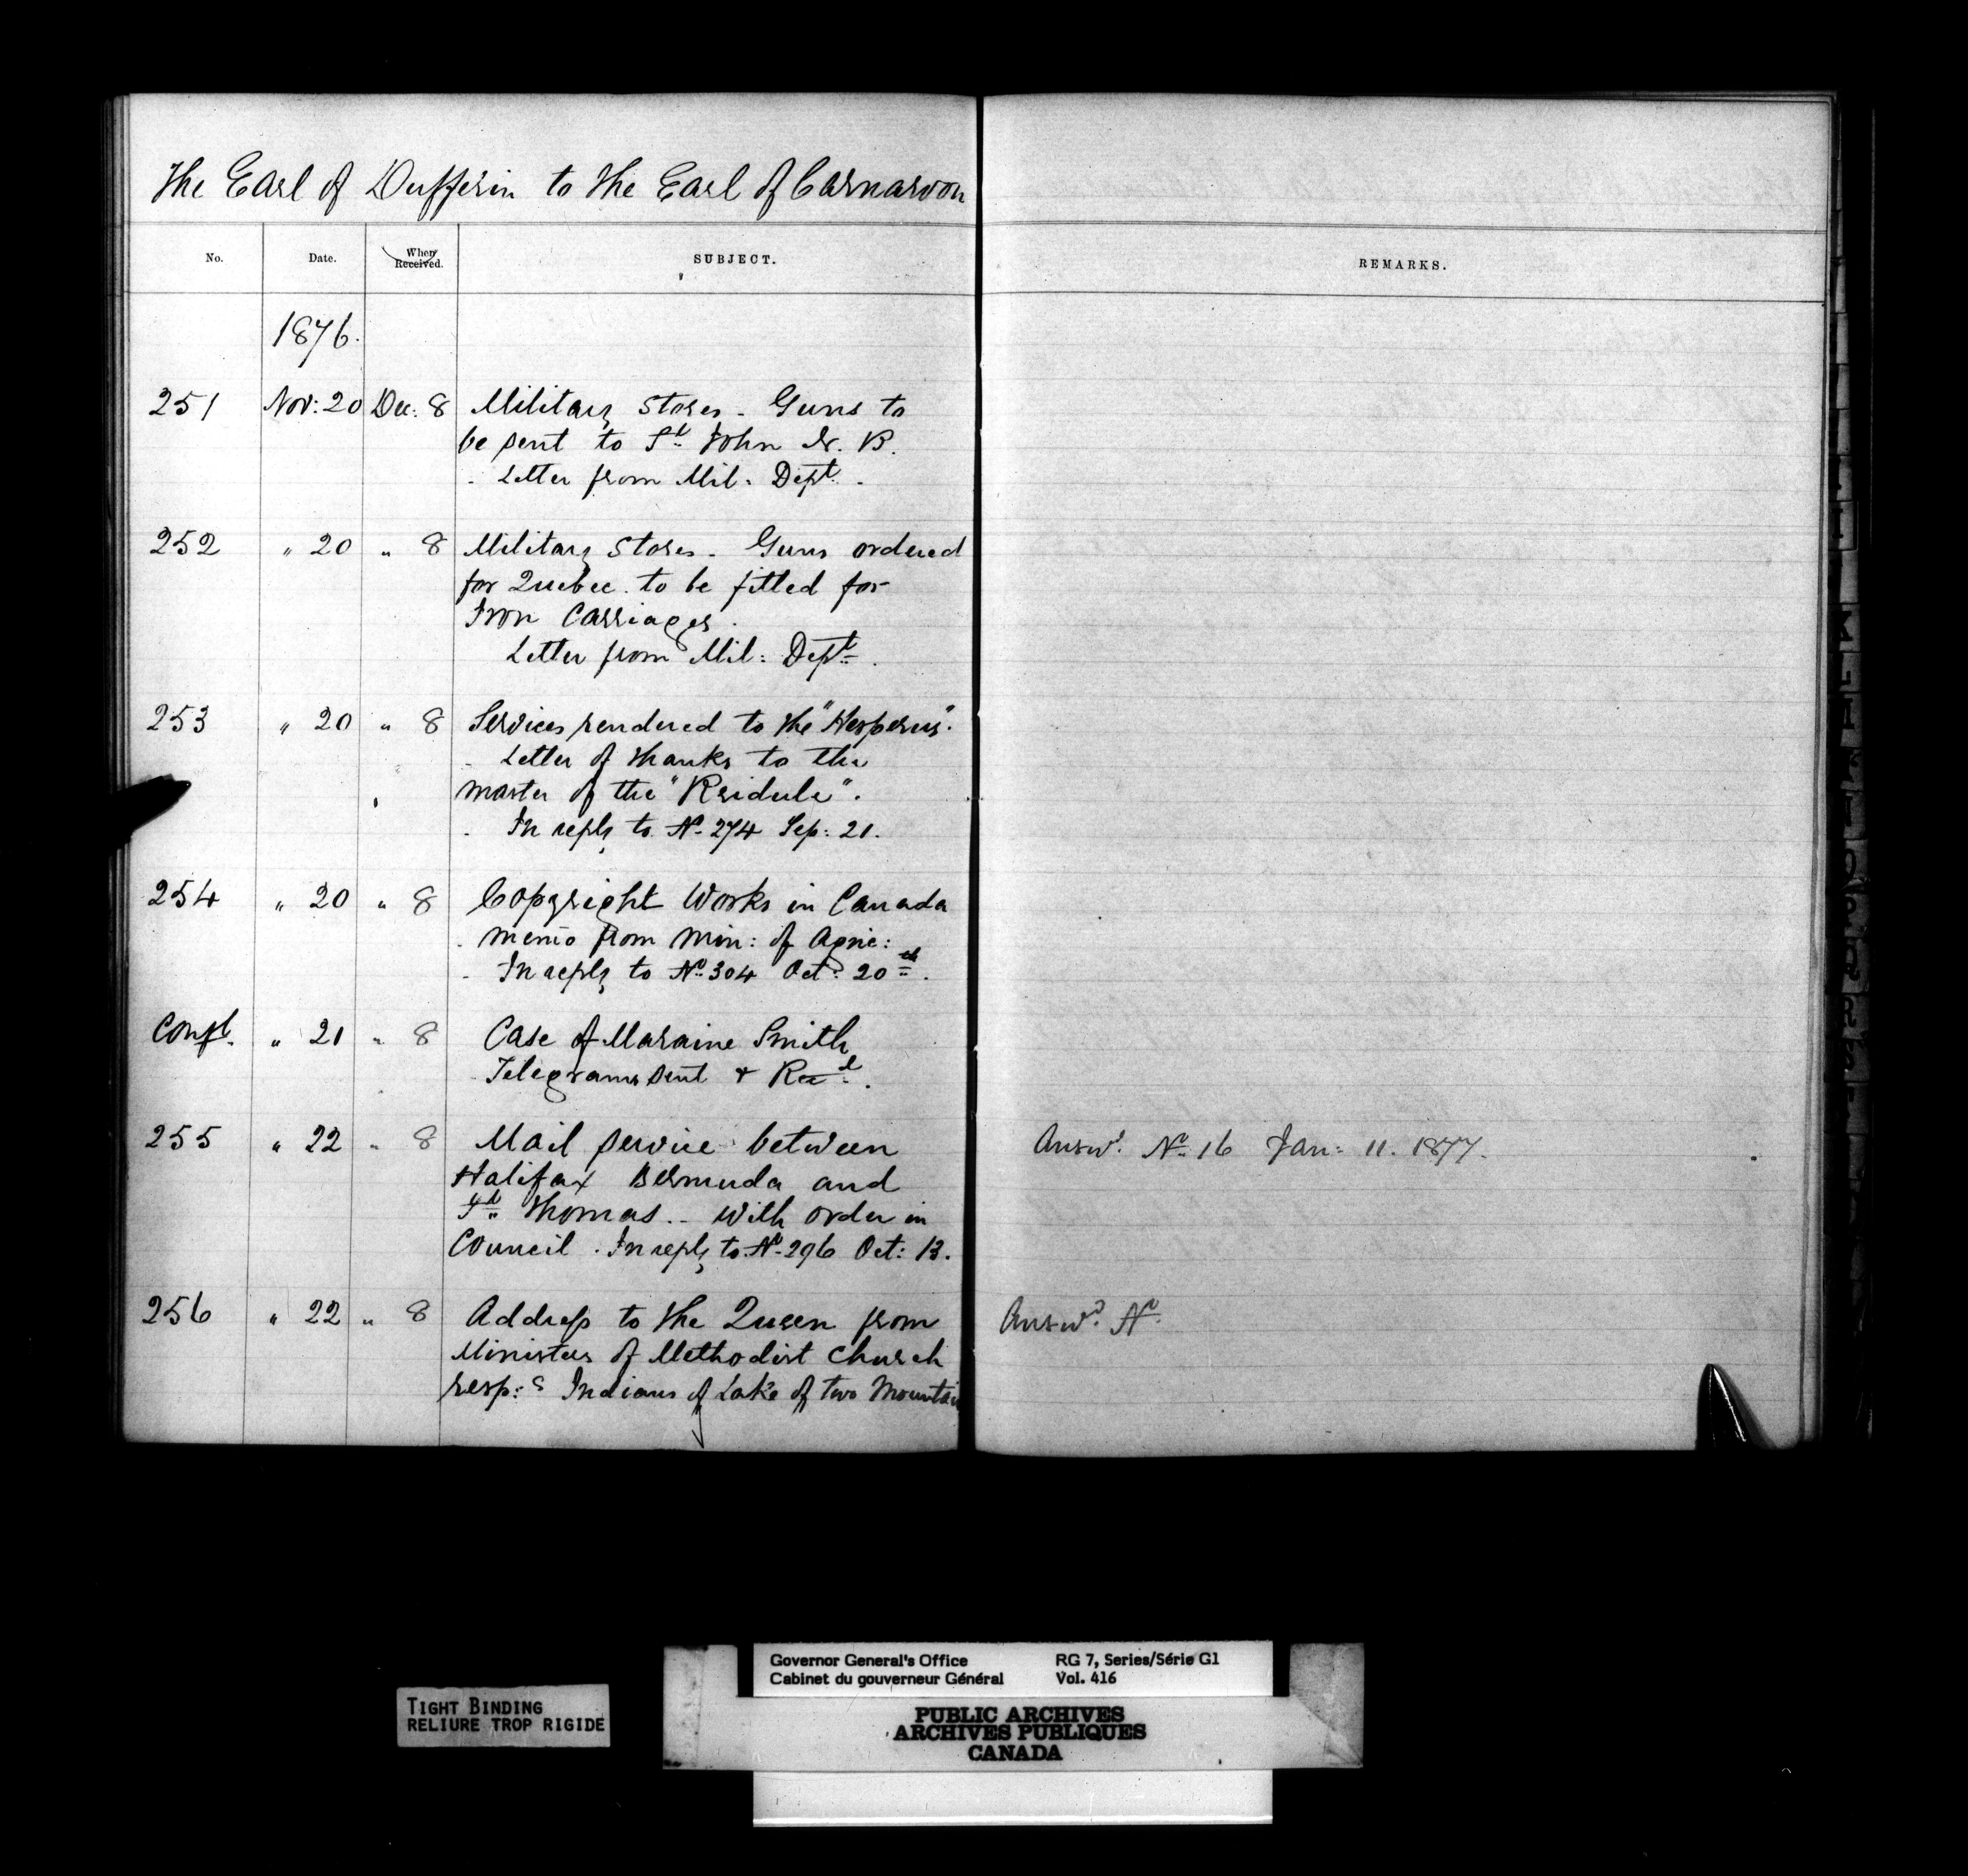 The Earl of Dufferin to the Earl of Carnarvon
No. Date. When Received. SUBJECT. REMARKS.
1876.
251 Nov: 20 Dec: 8 Military Stores - Guns to
be sent to St. John N. B.
- Letter from Mil: Dept.
252 " 20 " 8 Military Stores - Guns ordered
for Quebec to be fitted for
Iron Carriages.
Letter from Mil: Dept.
253 " 20 " 8 Services rendered to the "Hesperus".
- Letter of thanks to the
master of the
- In reply to No 274 Sep: 21.
254 " 20 " 8 Copyright Works in Canada
- Memo from Min: of Agric:
- In reply to No. 304 Oct: 20th.
Confl. " 21 " 8 Case of Maraine Smith
- Telegrams sent & Recd.
255 " 22 " 8 Mail service between Answd. No 16 Jan: 11. 1877.
Halifax Bermuda and
St. Thomas.- With order in
Council. In reply to No 296 Oct: 13.
256 " 22 " 8 Address to the Queen from Answd. No.
Ministers of Methodist Church
resp:g Indians of Lake of two Mountain
Governor General's Office
Cabinet du gouverneur Général
RG 7, Series/Série G1
Vol. 416
TIGHT BINDING
RELIURE TROP RIGIDE
PUBLIC ARCHIVES
ARCHIVES PUBLIQUES
CANADA